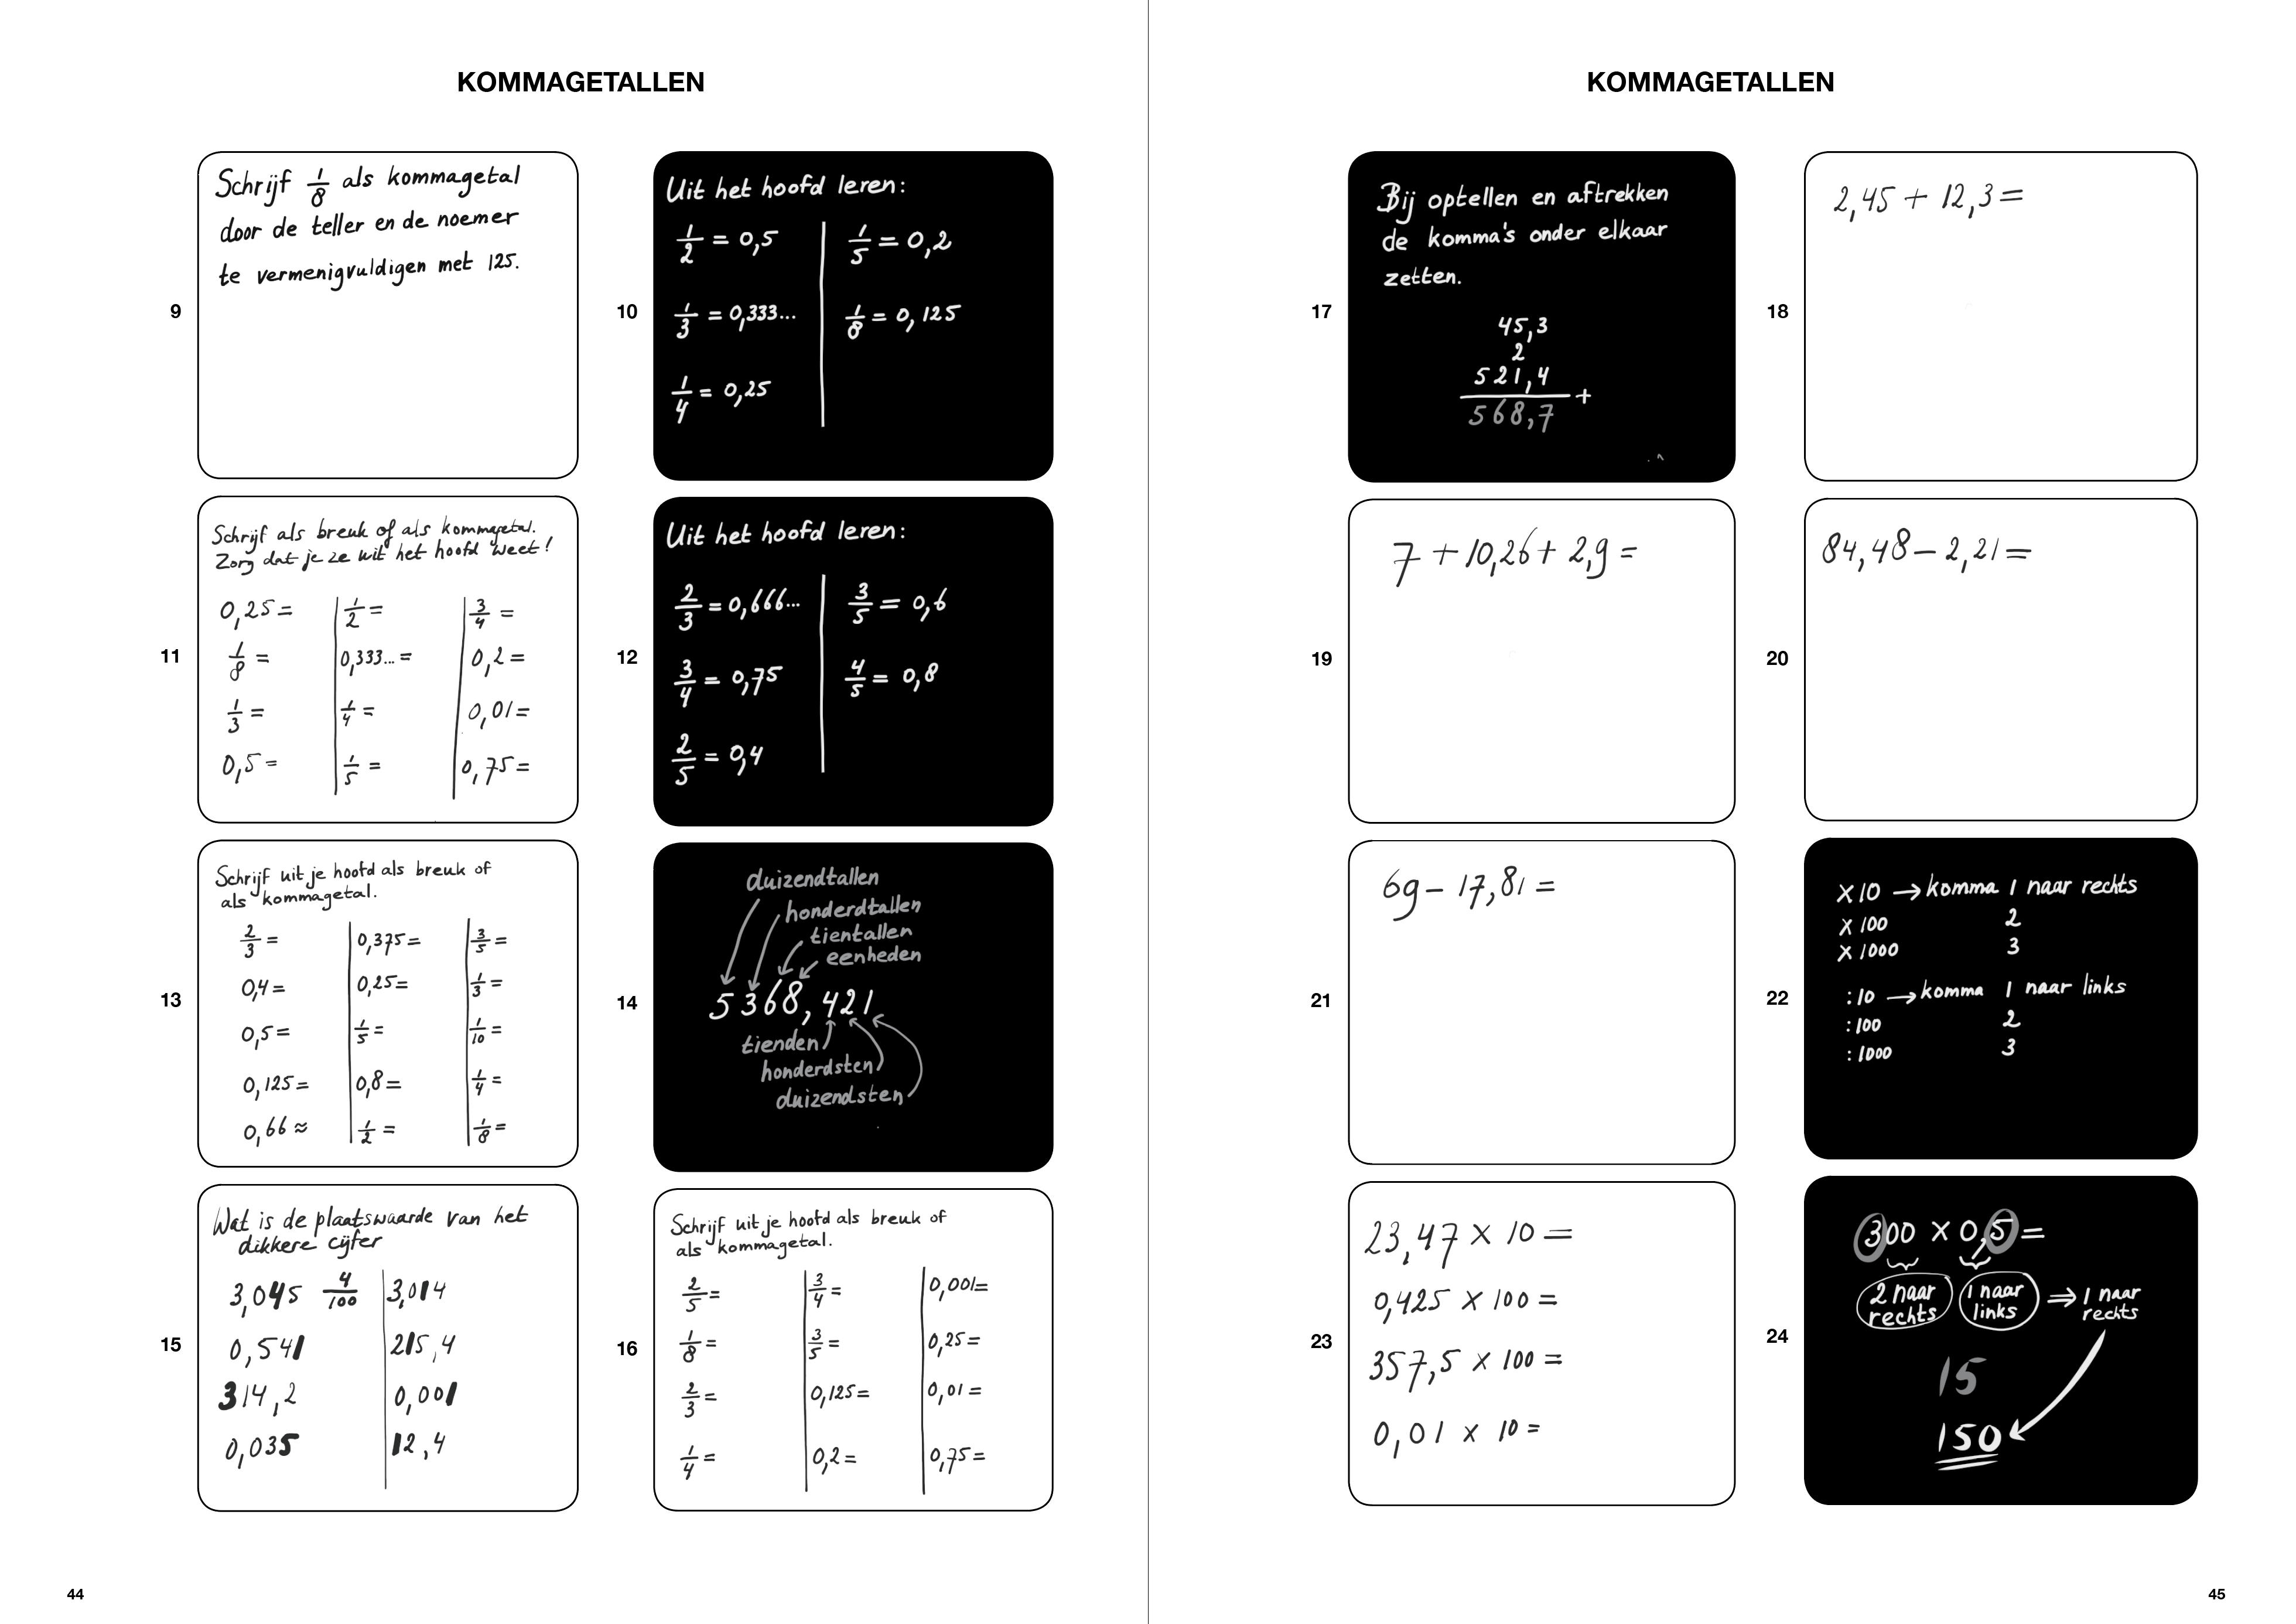 KOMMAGETALLEN
9
Schrijf 1/8 als kommagetal
door de teller en de noemer
te vermenigvuldigen met 125.
10
Uit het hoofd leren:
1/2 = 0,5
1/3 = 0,333...
1/4 = 0,25
1/5 = 0,2
1/8 = 0,125
11
Schrijf als breuk of als kommagetal.
Zorg dat je ze uit het hoofd weet!
0,25 =
1/8 =
1/3 =
0,5 =
1/2 =
0,333... =
1/4 =
1/5 =
3/4 =
0,2 =
0,01 =
0,75 =
12
Uit het hoofd leren:
2/3 = 0,666...
3/4 = 0,75
2/5 = 0,4
3/5 = 0,6
4/5 = 0,8
13
Schrijf uit je hoofd als breuk of
als kommagetal.
2/3 =
0,4 =
0,5 =
0,125 =
0,66 ≈
0,375 =
0,25 =
1/5 =
0,8 =
1/2 =
3/5 =
1/3 =
1/10 =
1/4 =
1/8 =
14
duizendtallen
honderdtallen
tientallen
eenheden
5368,421
tienden
honderdsten
duizendsten
15
Wat is de plaatswaarde van het
dikkere cijfer
3,045 4/100
0,541
314,2
0,035
3,014
215,4
0,001
12,4
16
Schrijf uit je hoofd als breuk of
als kommagetal.
2/5 =
1/8 =
2/3 =
1/4 =
3/4 =
3/5 =
0,125 =
0,2 =
0,001 =
0,25 =
0,01 =
0,75 =
44
KOMMAGETALLEN
17
Bij optellen en aftrekken
de komma's onder elkaar
zetten.
45,3
2
521,4
+
568,7
18
2,45 + 12,3 =
19
7 + 10,26 + 2,9 =
20
84,48 - 2,21 =
21
69 - 17,81 =
22
x 10 → komma 1 naar rechts
x 100 2
x 1000 3
: 10 → komma 1 naar links
: 100 2
: 1000 3
23
23,47 x 10 =
0,425 x 100 =
357,5 x 100 =
0,01 x 10 =
24
300 x 0,5 =
2 naar rechts
1 naar links
⇒ 1 naar rechts
15
150
45